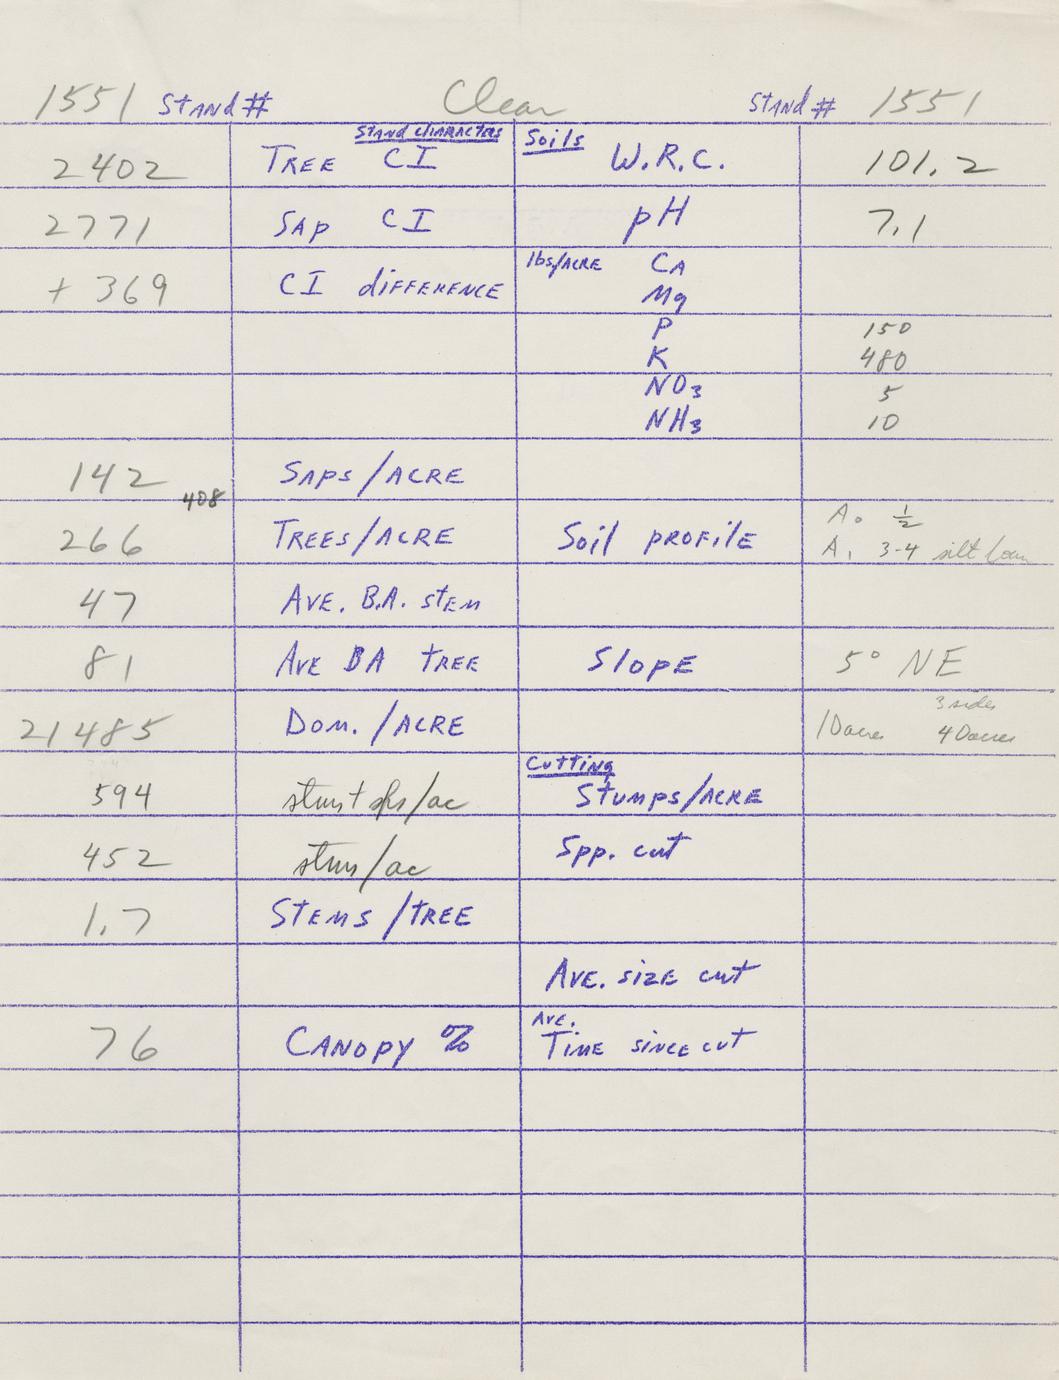 1551 Stand # Clear Stand # 1551
Stand Characters Soils
2402 Tree CI W.R.C. 101.2
2771 Sap CI pH 7.1
lbs/acre Ca
+ 369 CI difference Mg
P 150
K 480
NO3 5
NH3 10
142 Saps/acre
408
266 Trees/acre Soil profile A0 1/2
A1 3-4 silt loam
47 Ave. B.A. stem
81 Ave BA tree Slope 5° NE
3 sides
21485 Dom./acre 10 acres 40 acres
Cutting
594 stms + sps/ac Stumps/acre
452 stms/ac Spp. cut
1.7 Stems/tree
Ave. size cut
Ave.
76 Canopy % Time since cut